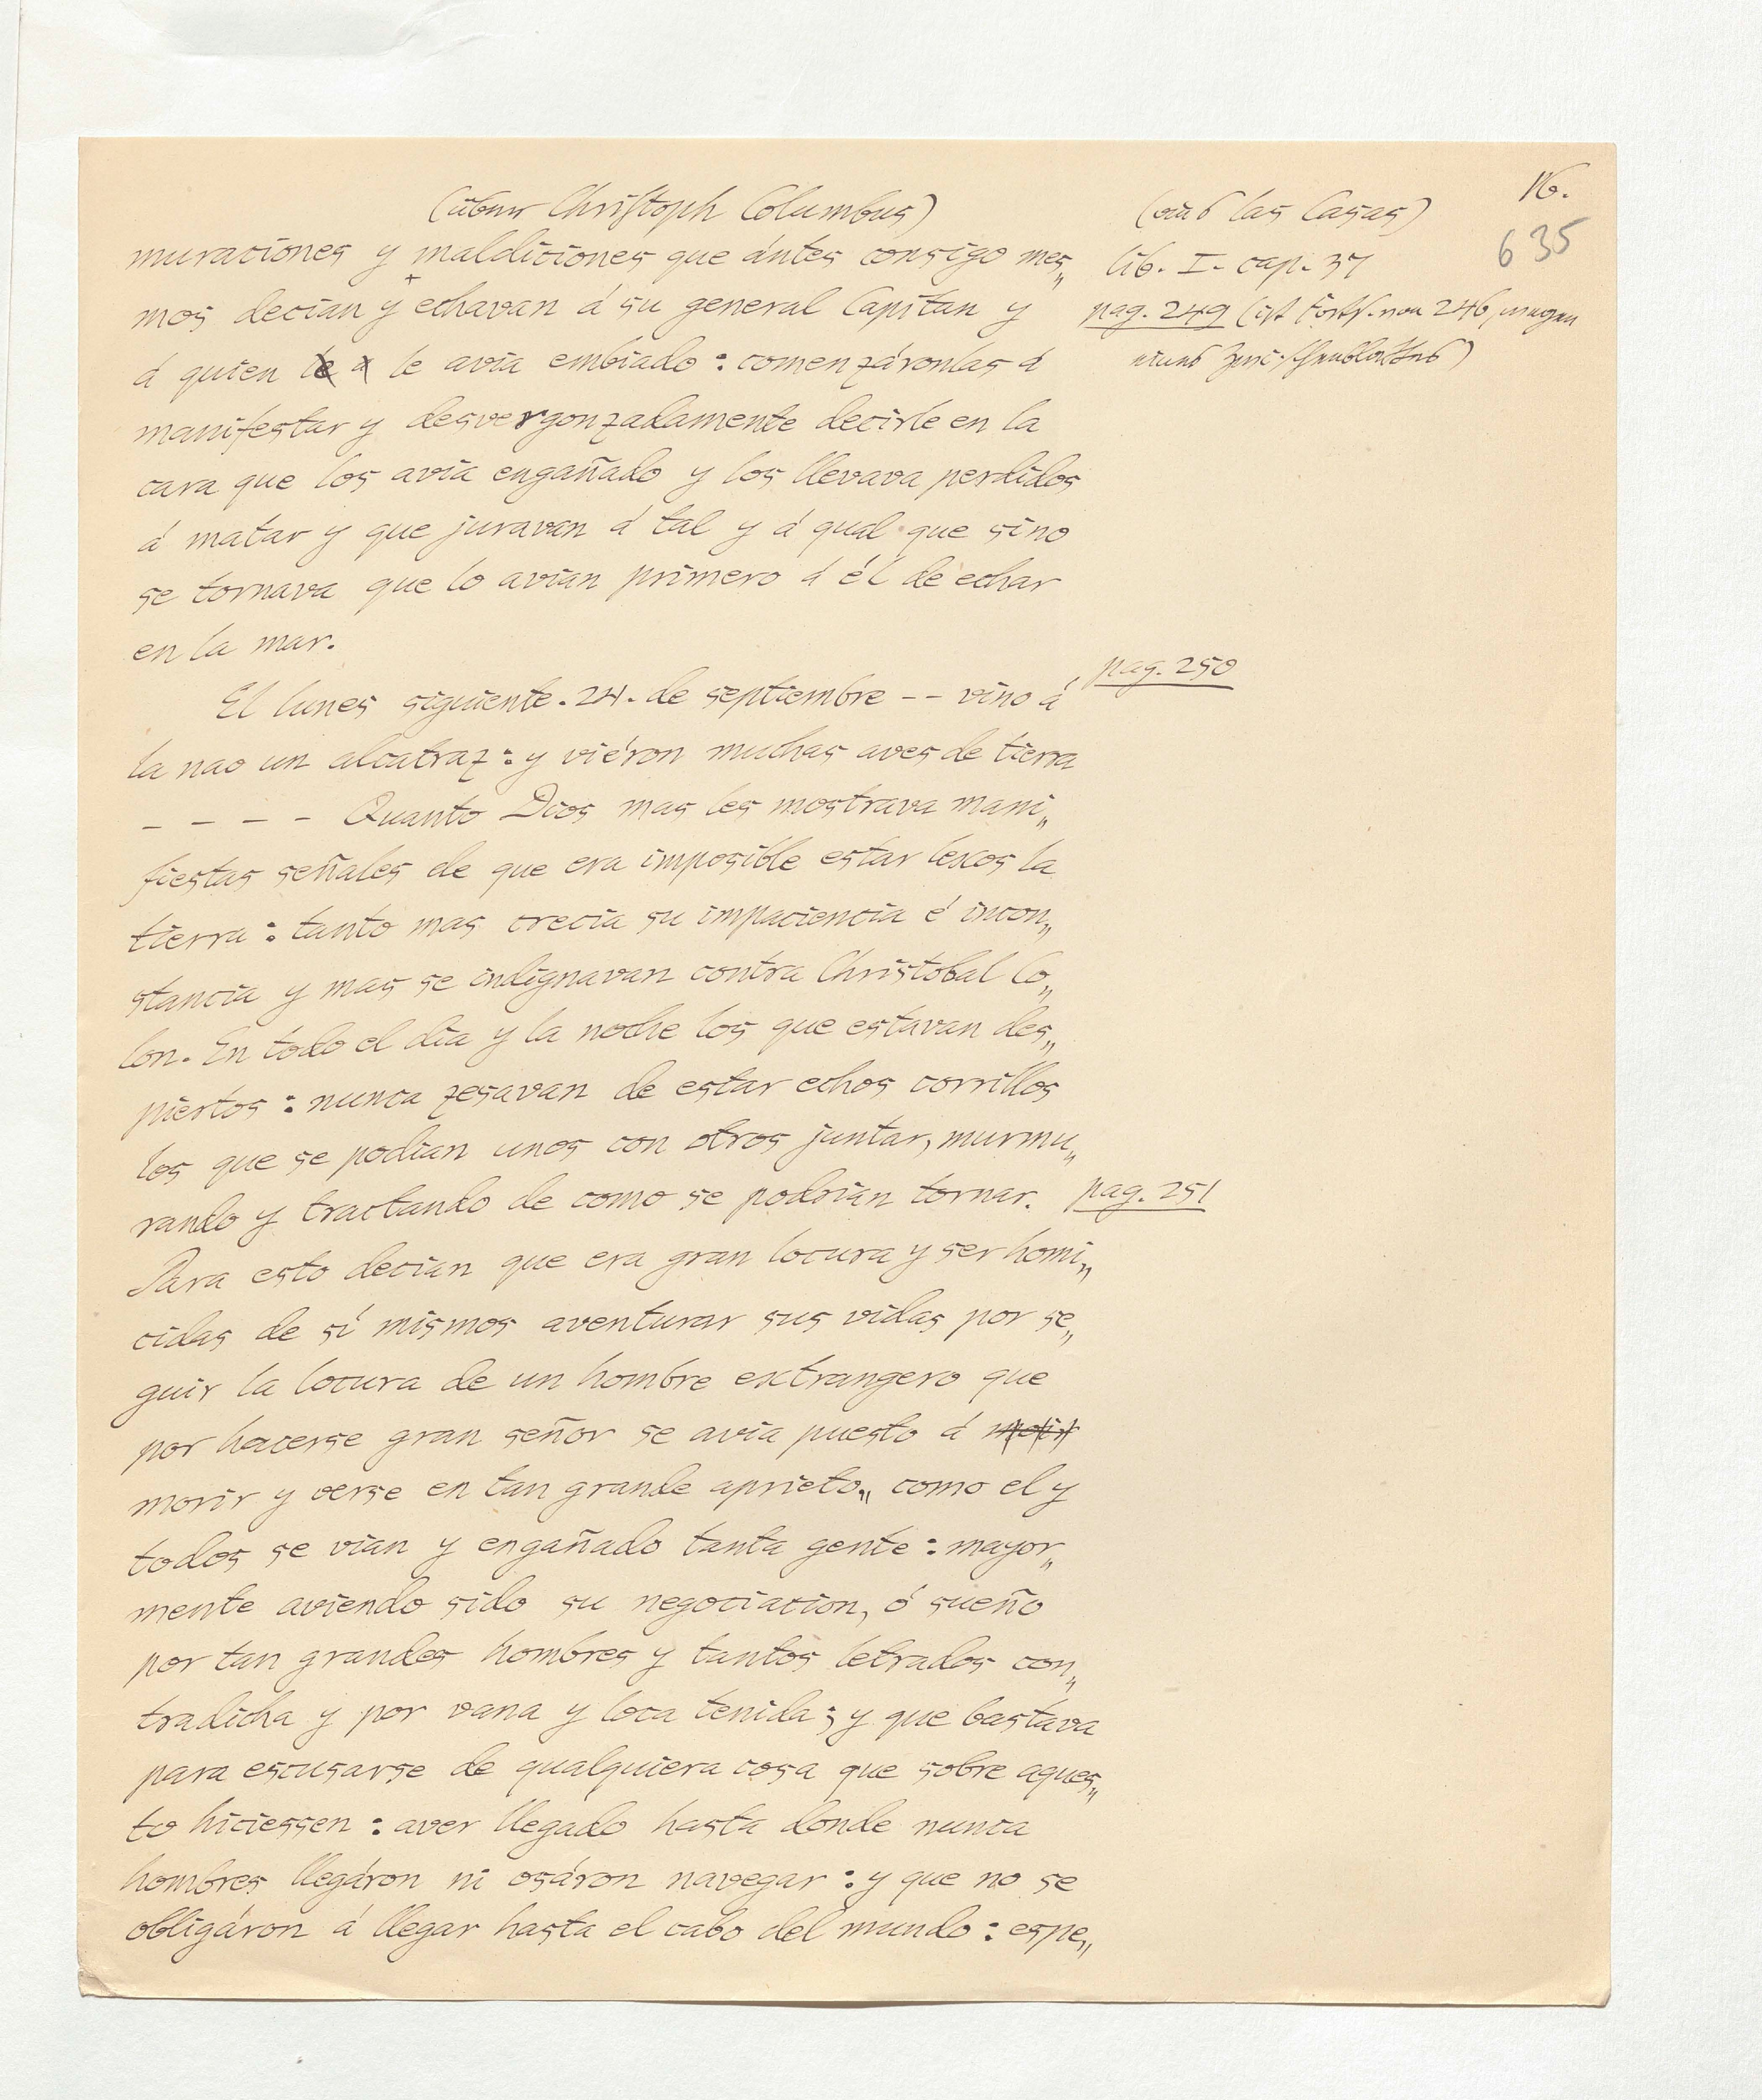 16.
(über Christoph Columbus)
(aus las Casas)
635
muraciones y maldiciones que ántes consigo mes„
lib. I. cap. 37
mos decian y echavan á su general Capitan y
pag. 249 (ist Forts. von 246, wegen
á quien le a le avia embiado : comenzáronlas á
eines
manifestar y desvergonzadamente decirle en la
cara que los avia engañado y los llevava perdidos
á matar y que juravan á tal y á qual que sino
se tornava que lo avian primero á él de echar
en la mar.
pag. 250
El lunes siguiente . 24 . de septiembre -- vino á
la nao un alcatraz : y viéron muchas aves de tierra
- - - - Quanto Dios mas les mostrava mani„
fiestas señales de que era imposible estar lexos la
tierra : tanto mas crecia su impaciencia é incon„
stancia y mas se indignavan contra Christobal Co„
lon. En todo el dia y la noche los que estavan des„
piertos : nunca zesavan de estar echos corrillos
los que se podian unos con otros juntar, murmu„
rando y tractando de como se podrian tornar.
pag. 251
Para esto decian que era gran locura y ser homi„
cidas de sí mismos aventurar sus vidas por se„
guir la locura de un hombre extrangero que
por hacerse gran señor se avia puesto á moir
morir y verse en tan grande aprieto„ como el y
todos se vian y engañado tanta gente : mayor„
mente aviendo sido su negociacion, ó sueño
por tan grandes hombres y tantos letrados con„
tradicha y por vana y loca tenida ; y que bastava
para escusarse de qualquiera cosa que sobre aques„
to hiciessen : aver llegado hasta donde nunca
hombres llegáron ni osáron navegar : y que no se
obligáron á llegar hasta el cabo del mundo : espe„